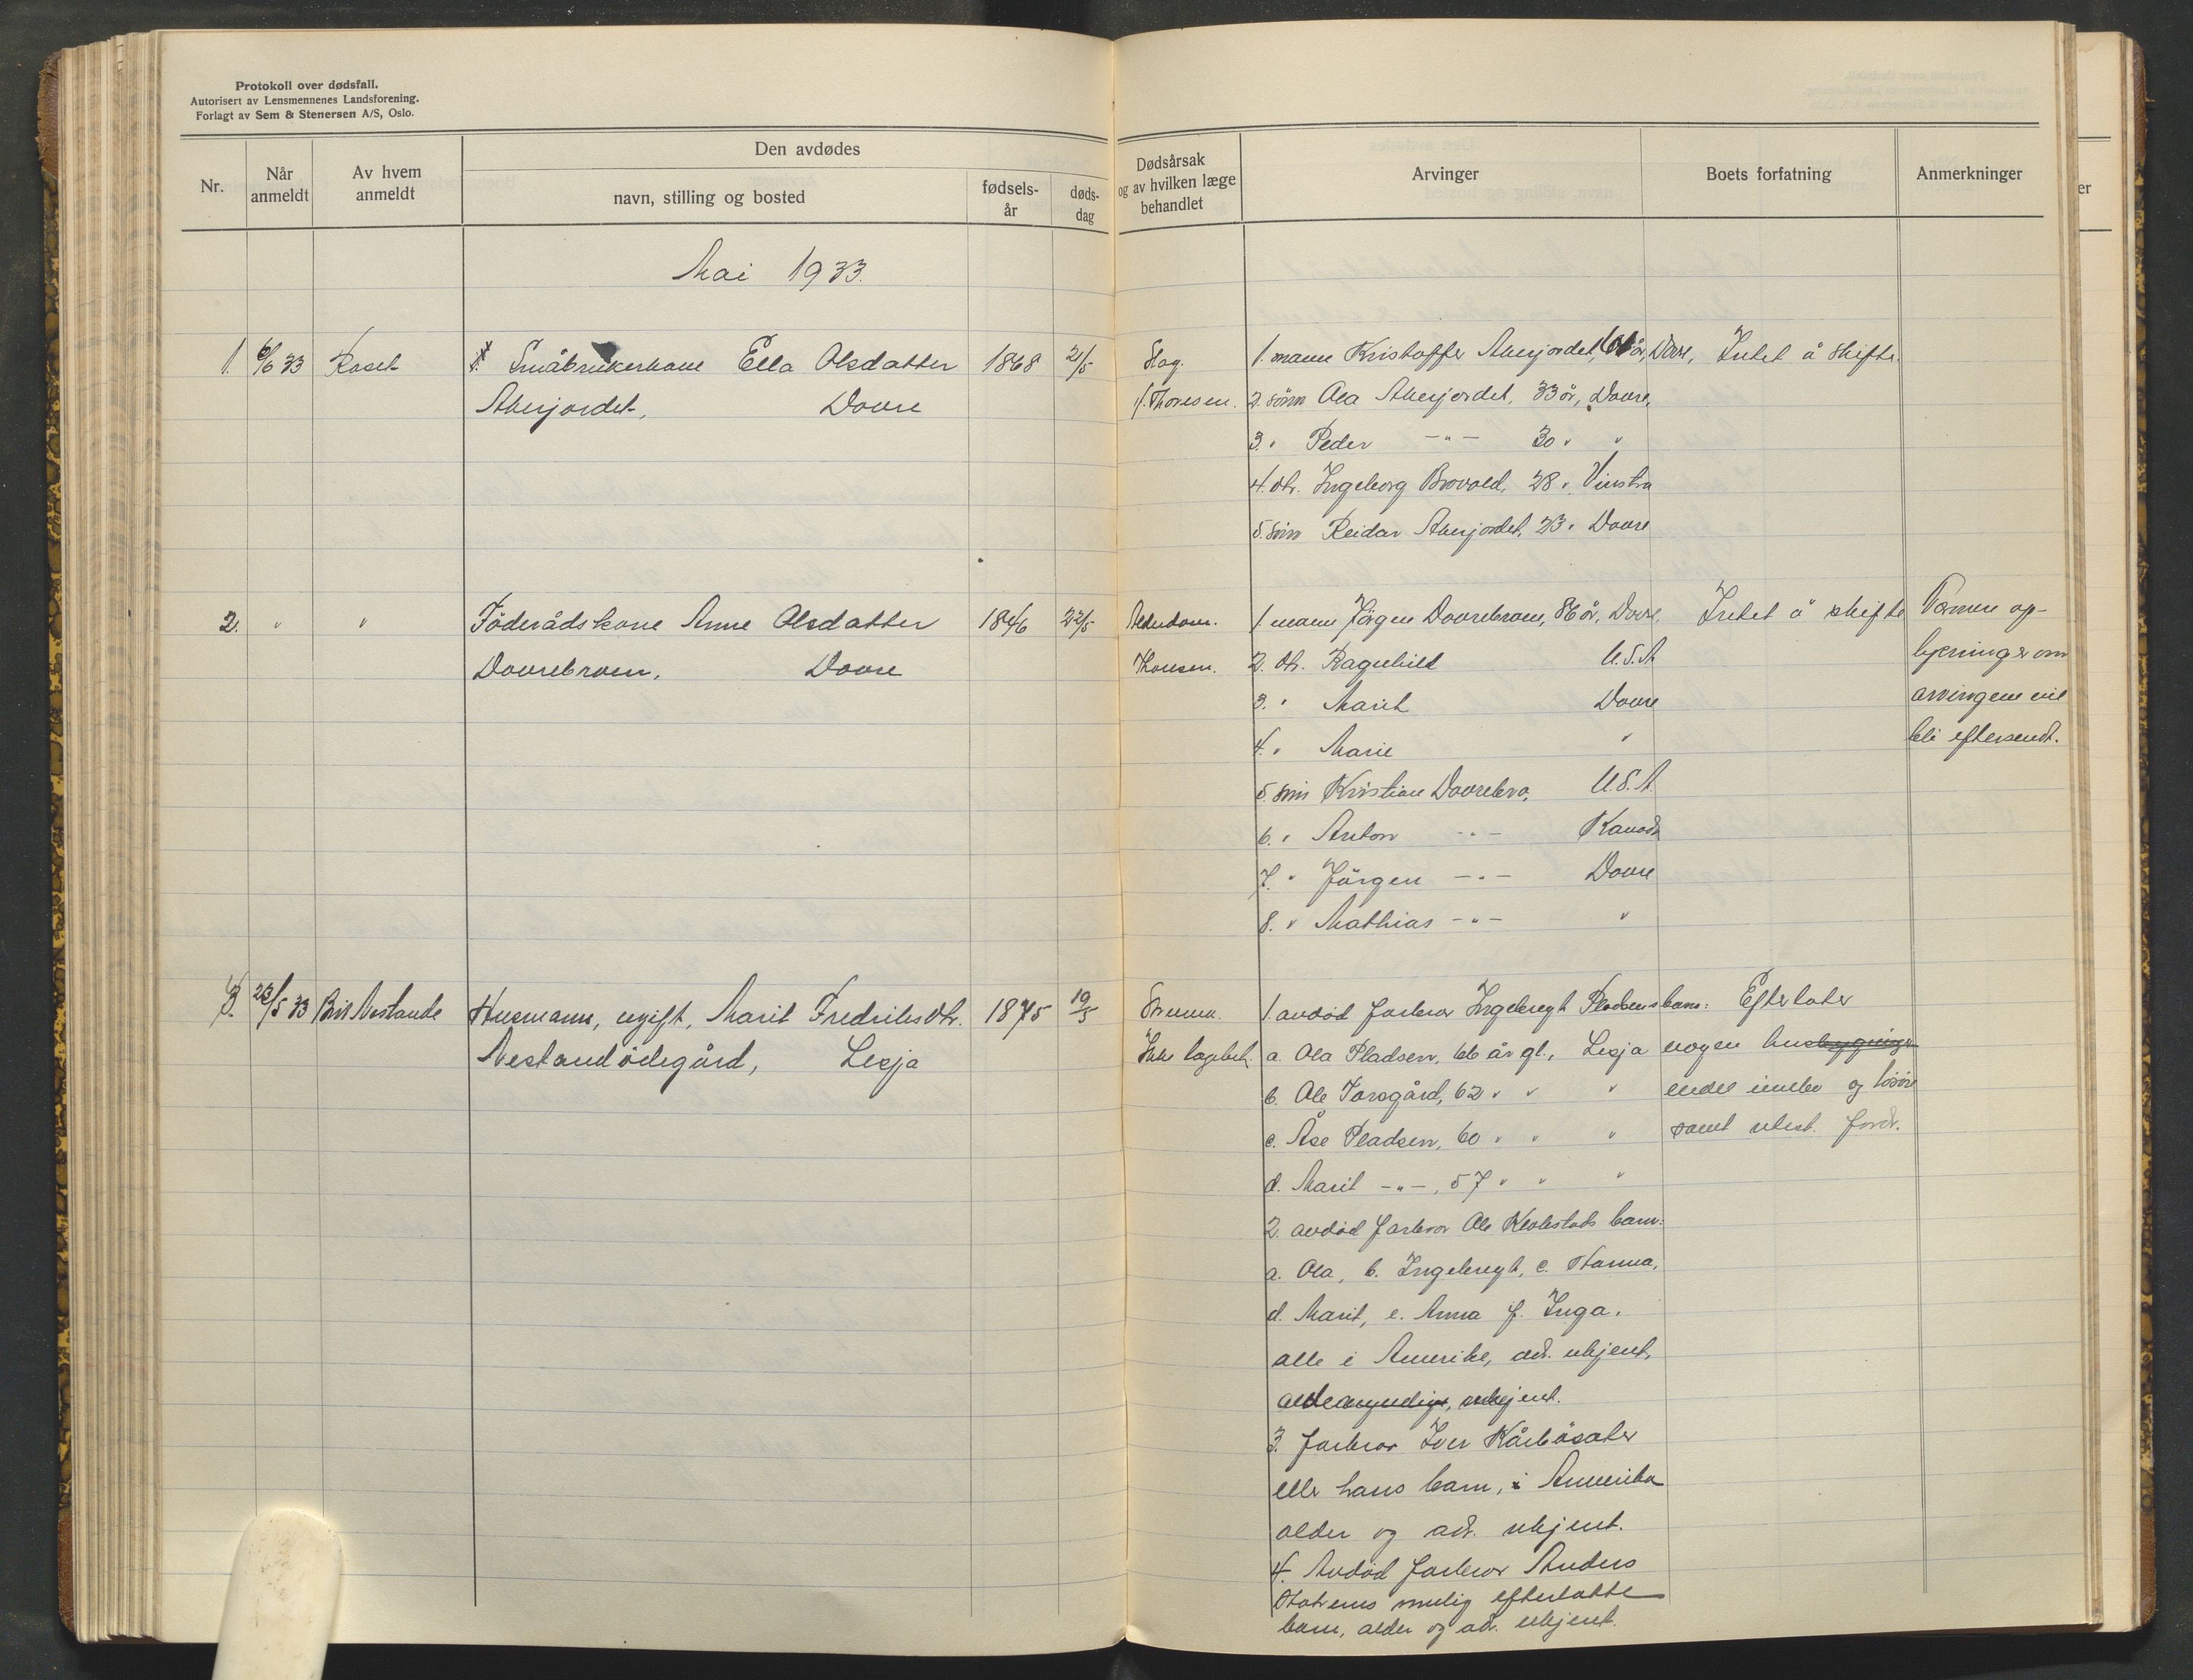 Protokoll over dødsfall.
Autorisert av Lensmennenes Landsforening.
Forlagt av Sem & Stenersen A/S, Oslo.
Nr.
Når anmeldt
Av hvem anmeldt
Den avdødes
navn, stilling og bosted
fødsels-år
døds-dag
Dødsårsak og av hvilken læge behandlet
Arvinger
Boets forfatning
Anmerkninger
Mai 1933.
1. 6/6 33 Småbrukerkone Ella Olsdatter 1868 21/5
Dovre
Slag.
Thoresen.
1. mann Kristoffer Akerjordet, år, Dovre, Intet å skifte.
2. sønn Ola Akerjordet, 33 år, Dovre,
3. " Peder -"- 30 " "
4. dtr. Ingeborg Brovold, 28 " Vinstra
5. sønn Reidar Akerjordet, 23 " Dovre
2. " " Föderådskone Anne Olsdatter 1846 22/5
Dovrebroen, Dovre
Alderdom.
1. mann Jörgen Dovrebroen, 86 år, Dovre. Intet å skifte Nærmere op-
2. dtr. Ragnhild U.S.A lysninger om
3. " Marit Dovre arvingene vil
4. " Marie " bli eftersendt.
5. sön Kristian Dovrebro, U.S.A.
6. " Anton -"- Kanada
7. " Jörgen -"- Dovre
8. " Mathias -"- "
3. 23/5 33 Brit Nestande Husmann, ugift, Marit Fredriksdtr. 1845 19/5
Nestandödegård, Lesja
Struma.
Ikke lægebeh.
1. avdöd farbror Ingebregt Pladsens barn: Efterlater
a. Ola Pladsen, 66 år gl., Lesja nogen husbygninger
b. Ole Forsgård, 62 " " " endel innbo og lösöre
c. Åse Pladsen, 60 " " " samt utest. fordr.
d. Marit -"-, 57 " " "
2. avdöd farbror Ole barn:
a. Ola, b. Ingebregt, c. Hanna,
d. Marit, e. Anna f. Inga.
alle i Amerika, adr. ukjent,
ukjent.
3. farbror Iver Kårbösæter
eller hans barn, i Amerika
alder og adr. ukjent.
4. Avdöd farbror Anders
mulig efterlatte
barn, alder og adr. ukjent.